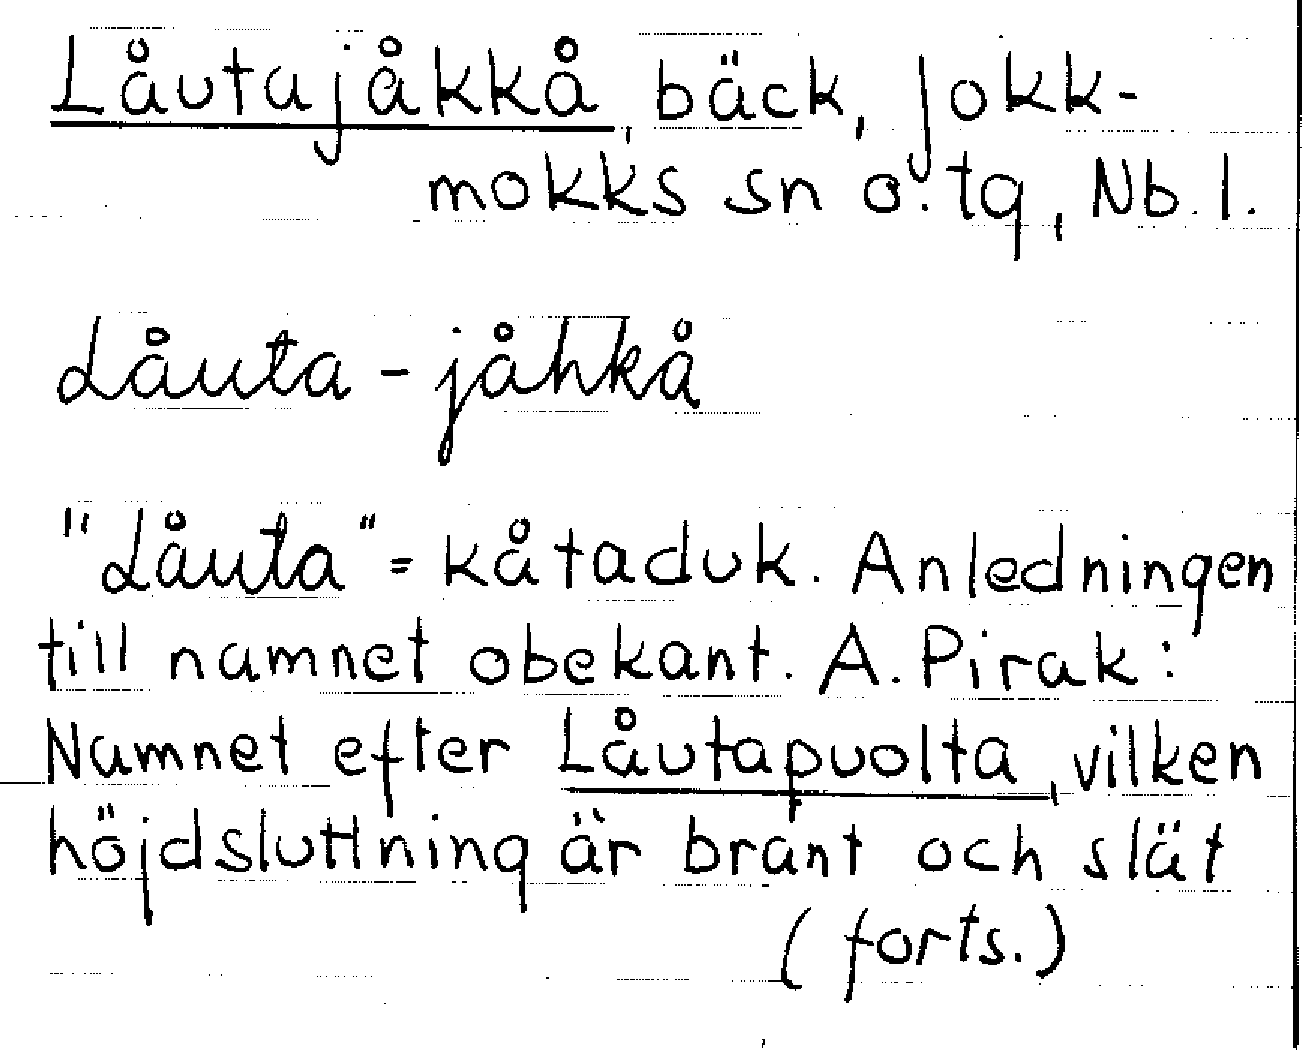 Låutajåkkå, bäck, Jokk-
mokks sn o. tg, Nb. l.
Låuta-jåhkå
"Låuta" = kåtaduk. Anledningen
till namnet obekant. A. Pirak:
Namnet efter Låutapuolta, vilken
höjdsluttning är brant och slät
(forts.)